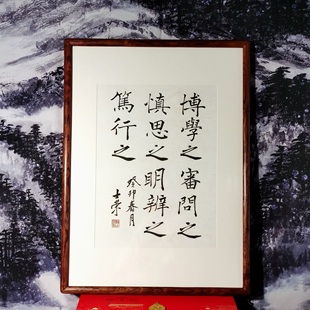 博學之審問之
慎思之明辨之
篤行之
癸卯春月
士荣